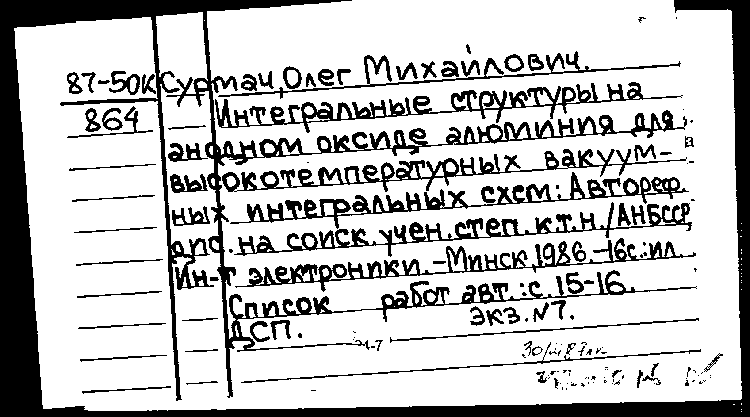 87-50К Сурмач, Олег Михайлович.
864 Интегральные структуры на
анодном оксиде алюминия для
высокотемпературных вакуум-
ных интегральных схем: Автореф.
дис. на соиск. учен. степ. к.т.н. / АН БССР,
Ин-т электроники. - Минск, 1986. - 16с.: ил.
Список работ авт.: с. 15-16.
ДСП. экз. N7.